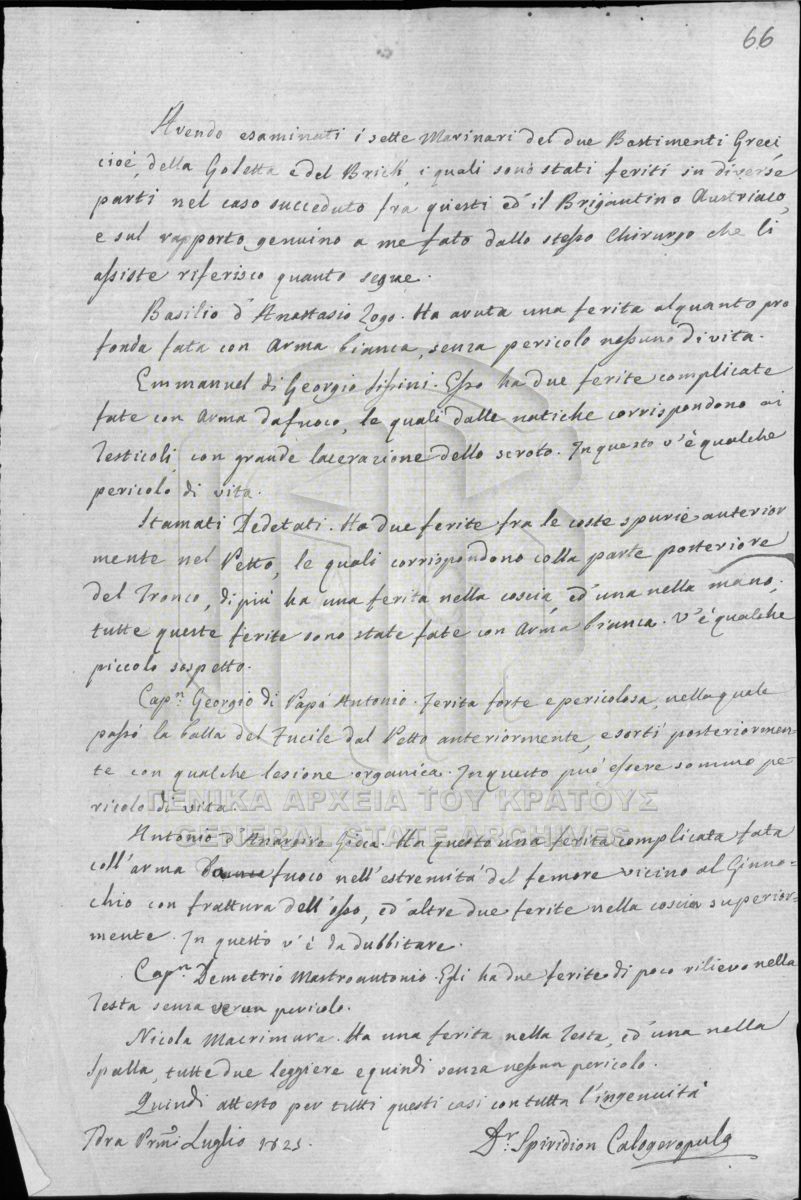 66
Avendo esaminati i sette Marinari dei due Bastimenti Greci
cioè, della Goletta e del Brick, i quali sono stati feriti in diverse
parti nel caso succeduto fra questi ed' il Brigantino Austriaco,
e sul rapporto genuino a me fato dallo stesso Chirurgo che li
assiste riferisco quanto segue.
Basilio d'Anastasio Zogo. Ha avuta una ferita alquanto pro
fonda fata con Arma bianca, senza pericolo nessuno di vita.
Emmanuel di Georgio Sissini. Esso ha due ferite complicate
fate con Arma dafuoco, le quali dalle natiche corrispondono ai
Testicoli, con grande lacerazione dello scroto. In questo v'è qualche
pericolo di vita.
Stamati Dedetati. Ha due ferite fra le coste spurie anterior
mente nel Petto, le quali corrispondono colla parte posteriore
del Tronco, di più ha una ferita nella coscia, ed' una nella mano;
tutte queste ferite sono state fate con Arma bianca. V'è qualche
piccolo sospetto.
Capn. Georgio di Papa Antonio. Ferita forte e pericolosa, nella quale
passò la balla del Fucile dal Petto anteriormente, e sortì posteriormen-
te con qualche lesione organica. In questo può essere sommo pe
ricolo di vita.
ΓΕΝΙΚΑ ΑΡΧΕΙΑ ΤΟΥ ΚΡΑΤΟΥΣ
GENERAL STATE ARCHIVES
Antonio d'Anargiro Ha questo una ferita complicata fata
coll'arma fuoco nell'estremità del femore vicino al Ginnoc-
chio con frattura dell'osso, ed' altre due ferite nella coscia superior-
mente. In questo v'è da dubbitare.
Capn. Demetrio Mastroantonio. Egli ha due ferite di poco rilievo nella
Testa senza verun pericolo.
Nicola Macrimura. Ha una ferita nella Testa, ed' una nella
Spalla, tutte due leggiere e quindi senza nessun pericolo.
Quindi attesto per tutti questi casi con tutta l'ingenuità
Idra Prmo Luglio 1825.
Dr. Spiridion Calogeropulo